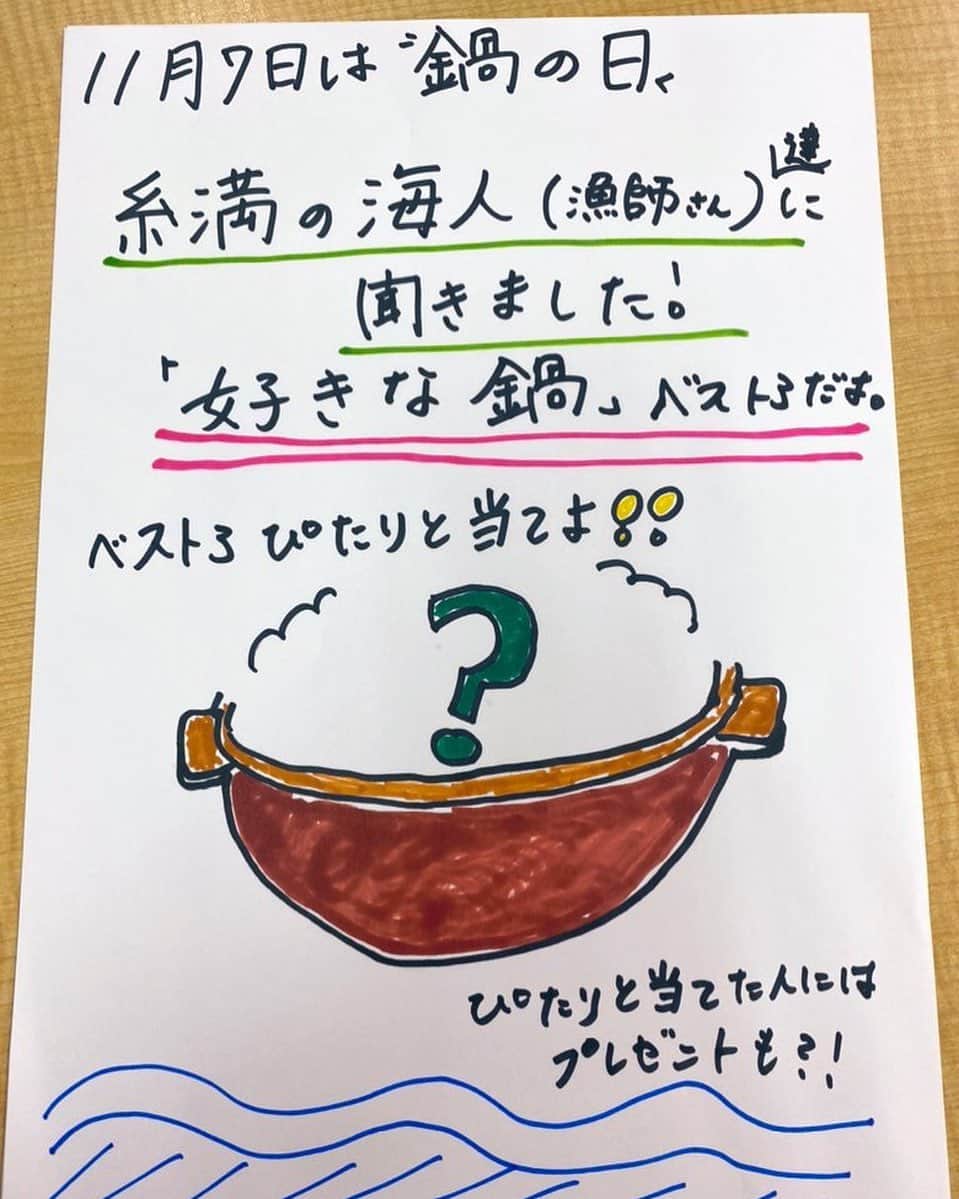 11月7日は〝鍋の日〟
糸満の海人(漁師さん)達に
聞きました!
「好きな鍋」ベスト3だよ。
ベスト3 ぴたりと当てよ!!
?
ぴたりと当てた人には
プレゼントも?!